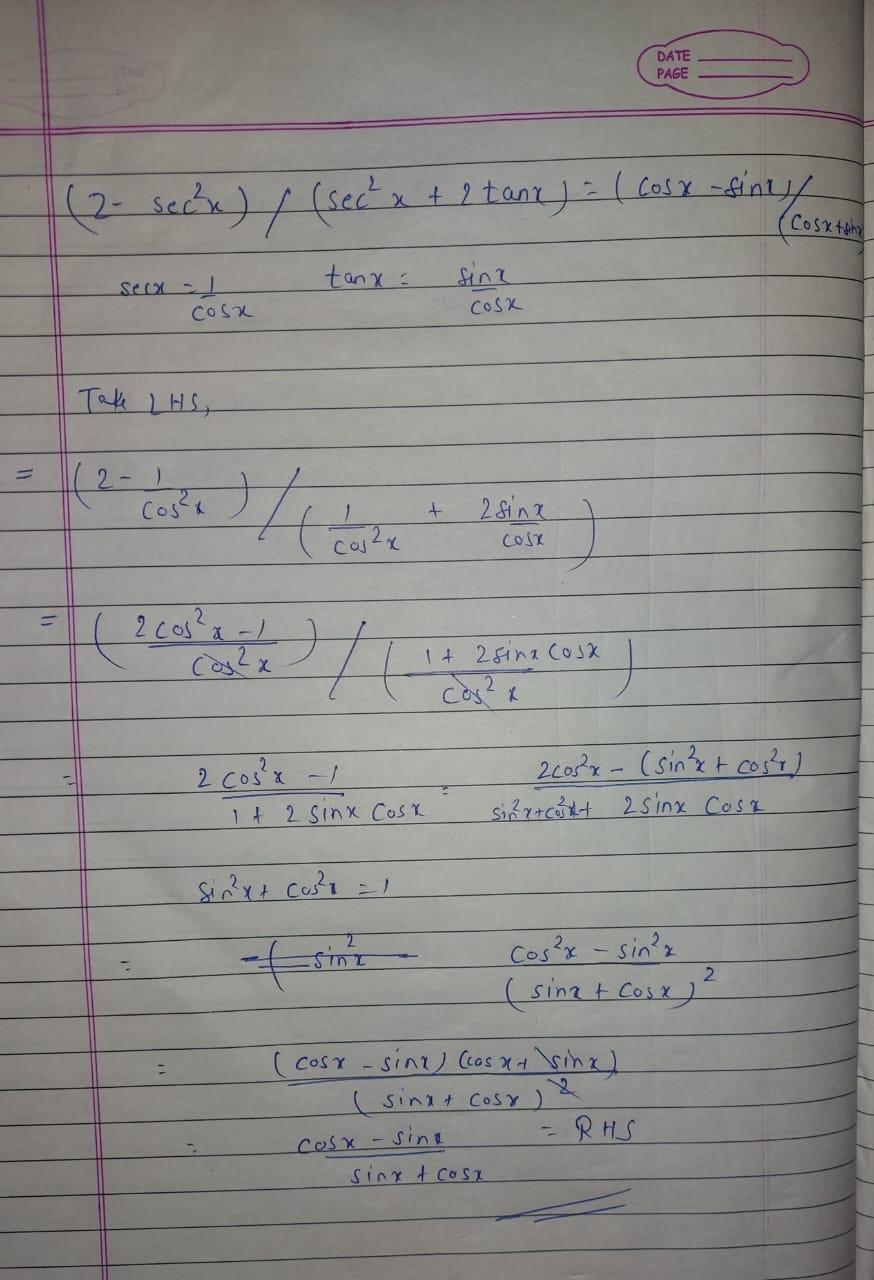 DATE
PAGE
(2 - sec²x) / (sec²x + 2 tanx) = (cosx - sinx) / (cosx + sinx)
secx = 1/cosx    tanx = sinx/cosx
Take LHS,
= (2 - 1/cos²x) / (1/cos²x + 2sinx/cosx)
= ((2cos²x - 1)/cos²x) / ((1 + 2sinx cosx)/cos²x)
= (2cos²x - 1)/(1 + 2 sinx cosx) = (2cos²x - (sin²x + cos²x))/(sin²x + cos²x + 2sinx cosx)
sin²x + cos²x = 1
= (cos²x - sin²x)/(sinx + cosx)²
= (cosx - sinx)(cosx + sinx)/(sinx + cosx)²
= (cosx - sinx)/(sinx + cosx) = RHS